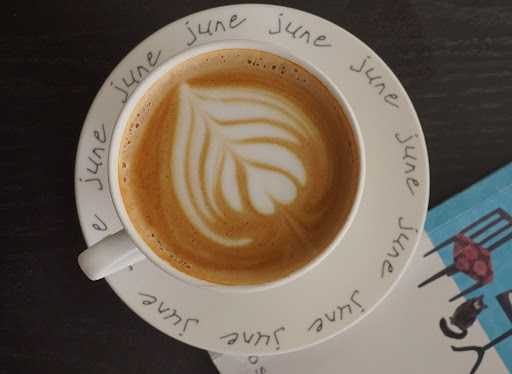 june
june
june
june
june
june
june
june
e
june
june